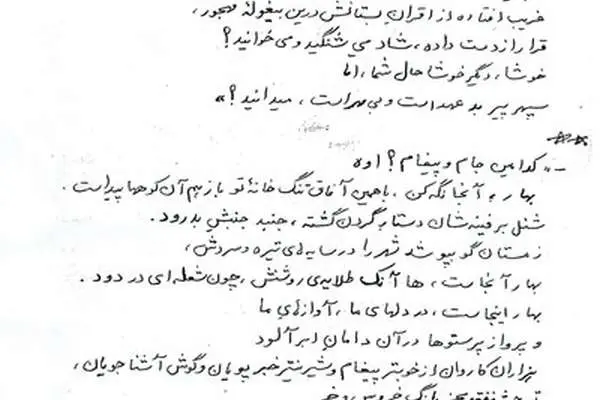 غریب افتاده از اقران بستانش درین بیغولهٔ مهجور،
قرار از دست داده، شاد می شنگید و می خوانید؟
خوشا، دیگر خوشا حال شما، اما
سپهر پیر بد عهد است و بی مهر است، میدانید؟»
**
- «کدامین جام و پیغام؟ اوه
بهار؛ آنجا نگه کن. با همین آفاق تنگ خانهٔ تو باز هم آن کوهها پیداست.
شنل برفینه شان دستار گردن گشته، جنبد جنبش بدرود.
زمستان گو بپوشد شهر را در سایه های تیره و سردش،
بهار آنجاست، ها آنک طلایه ی روشنش، چون شعله ای در دود.
بهار اینجاست، در دلهای ما، آوازهای ما
و پرواز پرستوها در آن دامان ابر آلود
هزاران کاروان از خوبتر پیغام و شیرینتر خبر پویان و گوش آشنا جویان،